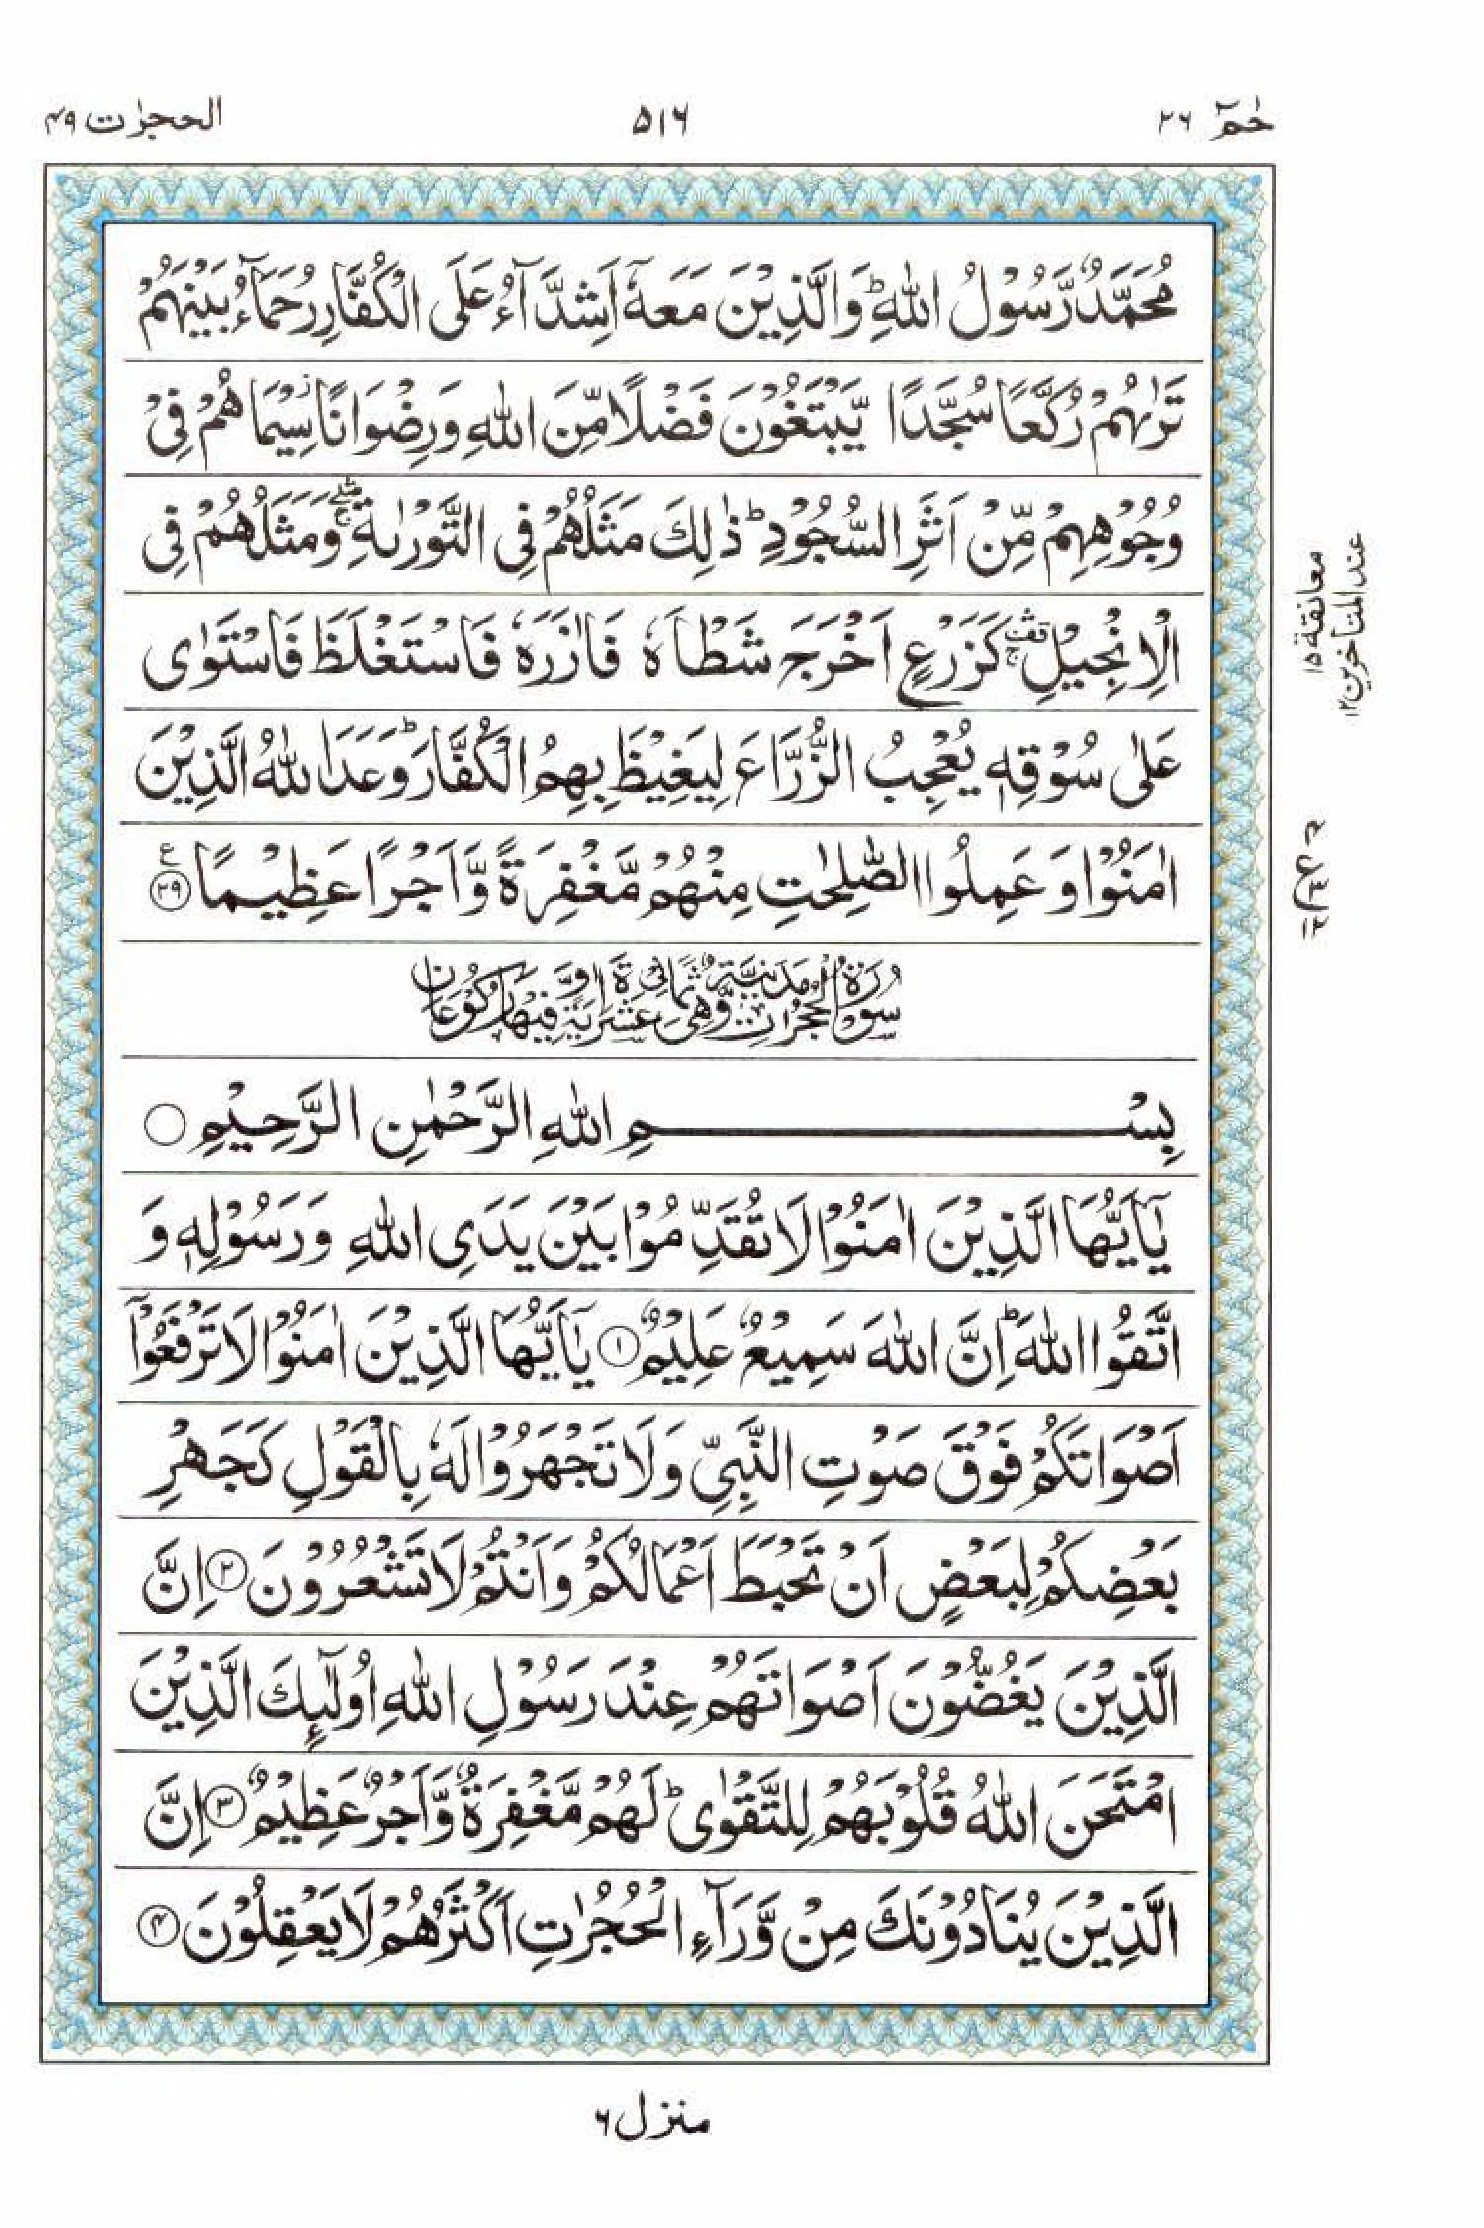 حٰمٓ ٢٦
٥١٦
الحجرٰت ٤٩
مُحَمَّدٌ رَّسُوْلُ اللّٰهِ ؕ وَالَّذِيْنَ مَعَهٗۤ اَشِدَّآءُ عَلَى الْكُفَّارِ رُحَمَآءُ بَيْنَهُمْ
تَرٰىهُمْ رُكَّعًا سُجَّدًا يَّبْتَغُوْنَ فَضْلًا مِّنَ اللّٰهِ وَرِضْوَانًا ؗ سِيْمَاهُمْ فِيْ
وُجُوْهِهِمْ مِّنْ اَثَرِ السُّجُوْدِ ؕ ذٰلِكَ مَثَلُهُمْ فِي التَّوْرٰىةِ ۛۖۚ وَمَثَلُهُمْ فِي
الْاِنْجِيْلِ ۛ۫ۚ كَزَرْعٍ اَخْرَجَ شَطْاَهٗ فَاٰزَرَهٗ فَاسْتَغْلَظَ فَاسْتَوٰى
عَلٰى سُوْقِهٖ يُعْجِبُ الزُّرَّاعَ لِيَغِيْظَ بِهِمُ الْكُفَّارَ ؕ وَعَدَ اللّٰهُ الَّذِيْنَ
اٰمَنُوْا وَ عَمِلُوا الصّٰلِحٰتِ مِنْهُمْ مَّغْفِرَةً وَّاَجْرًا عَظِيْمًا ٢٩ ع
سُوْرَةُ الْحُجُرَاتِ مَدَنِيَّةٌ وَّهِيَ ثَمَانِيْ عَشْرَةَ اٰيَةً وَّفِيْهَا رُكُوْعَانِ
بِسْمِ اللّٰهِ الرَّحْمٰنِ الرَّحِيْمِ
يٰۤاَيُّهَا الَّذِيْنَ اٰمَنُوْا لَا تُقَدِّمُوْا بَيْنَ يَدَيِ اللّٰهِ وَرَسُوْلِهٖ وَ
اتَّقُوا اللّٰهَ ؕ اِنَّ اللّٰهَ سَمِيْعٌ عَلِيْمٌ ١ يٰۤاَيُّهَا الَّذِيْنَ اٰمَنُوْا لَا تَرْفَعُوْۤا
اَصْوَاتَكُمْ فَوْقَ صَوْتِ النَّبِيِّ وَلَا تَجْهَرُوْا لَهٗ بِالْقَوْلِ كَجَهْرِ
بَعْضِكُمْ لِبَعْضٍ اَنْ تَحْبَطَ اَعْمَالُكُمْ وَاَنْتُمْ لَا تَشْعُرُوْنَ ٢ اِنَّ
الَّذِيْنَ يَغُضُّوْنَ اَصْوَاتَهُمْ عِنْدَ رَسُوْلِ اللّٰهِ اُولٰٓىِٕكَ الَّذِيْنَ
امْتَحَنَ اللّٰهُ قُلُوْبَهُمْ لِلتَّقْوٰى ؕ لَهُمْ مَّغْفِرَةٌ وَّاَجْرٌ عَظِيْمٌ ٣ اِنَّ
الَّذِيْنَ يُنَادُوْنَكَ مِنْ وَّرَآءِ الْحُجُرٰتِ اَكْثَرُهُمْ لَا يَعْقِلُوْنَ ٤
معانقة ١٥
عند المتأخرين ١٢
منزل ٦